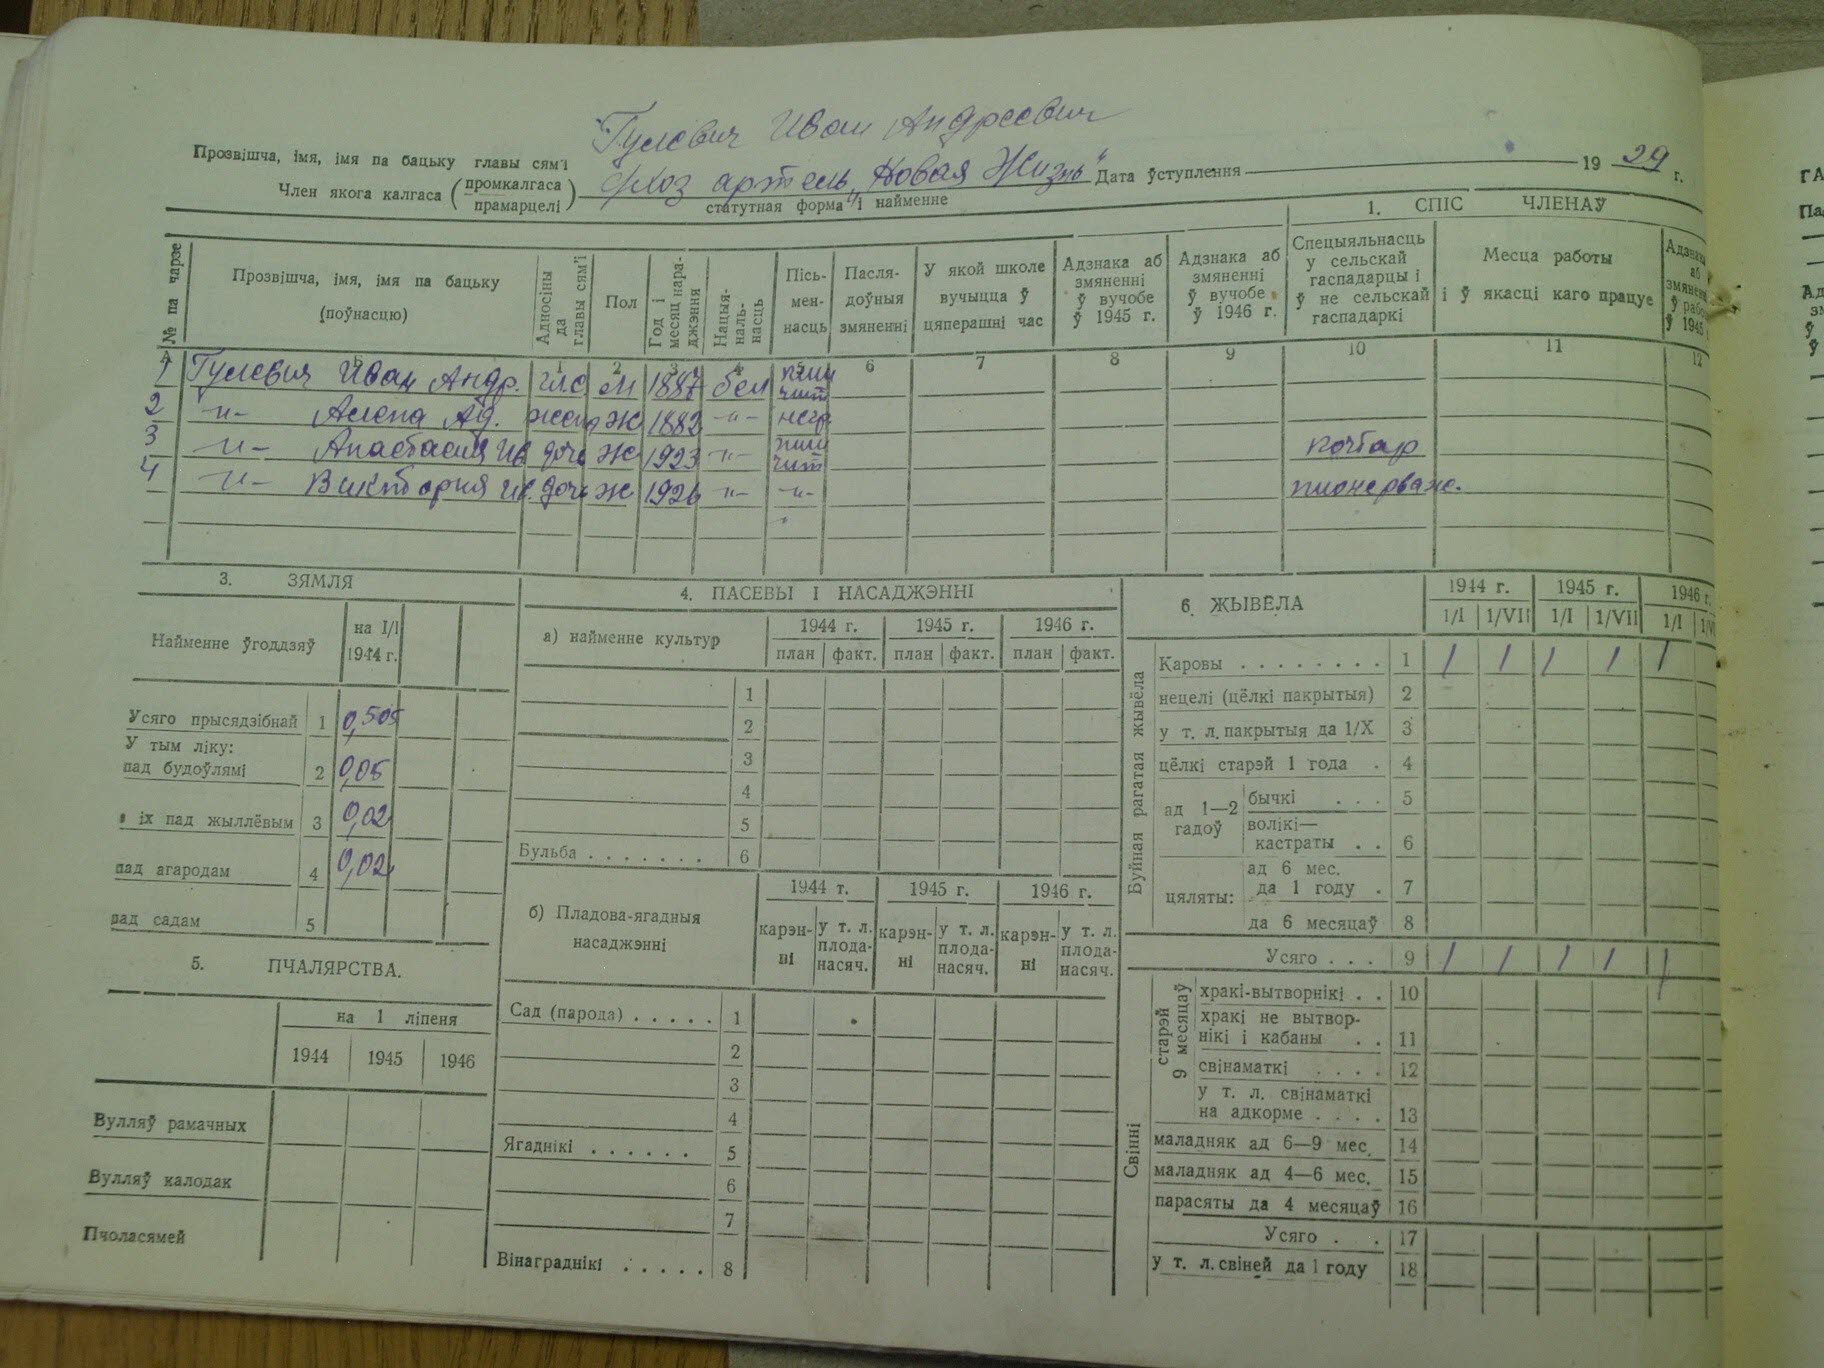 Гулевич Иван Андреевич
Прозвішча, імя, імя па бацьку главы сям'і
Член якога калгаса (промкалгаса прамарцелі) с/хоз артель „Новая Жизнь" Дата ўступлення 19 29 г.
статутная форма і найменне
1. СПІС ЧЛЕНАЎ
№ па чарзе
Прозвішча, імя, імя па бацьку (поўнасцю)
Адносіны да главы сям'і
Пол
Год і месяц нараджэння
Нацыянальнасць
Пісьменнасць
Пасля-доўныя змяненні
У якой школе вучыцца ў цяперашні час
Адзнака аб змяненні ў вучобе ў 1945 г.
Адзнака аб змяненні ў вучобе ў 1946 г.
Спецыяльнасць у сельскай гаспадарцы і ў не сельскай гаспадаркі
Месца работы і ў якасці каго працуе
Адзнака аб змяненні ў 1945
1 2 3 4 5 6 7 8 9 10 11 12
1 Гулевич Иван Андр. М 1887 бел
2 -"- Ад. Ж 1882 -"- негр
3 -"- Анастасия Ив. дочь Ж 1923 -"- почтар
4 -"- Виктория Ив. дочь Ж 1926 -"- -"- пионерваж.
3. ЗЯМЛЯ
Найменне ўгоддзяў на 1/I 1944 г.
Усяго прысядзібнай 1 0,505
У тым ліку:
пад будоўлямі 2 0,05
іх пад жыллёвым 3 0,02
пад агародам 4 0,02
пад садам 5
5. ПЧАЛЯРСТВА.
на 1 ліпеня
1944 1945 1946
Вулляў рамачных
Вулляў калодак
Пчоласямей
4. ПАСЕВЫ І НАСАДЖЭННІ
а) найменне культур 1944 г. 1945 г. 1946 г.
план факт. план факт. план факт.
1
2
3
4
5
Бульба . . . . . . . 6
б) Пладова-ягадныя насаджэнні
1944 г. 1945 г. 1946 г.
карэнні у т. л. плоданасяч. карэнні у т. л. плоданасяч. карэнні у т. л. плоданасяч.
Сад (парода) . . . . . 1
2
3
4
Ягаднікі . . . . . . 5
6
7
Вінаграднікі . . . . . 8
6. ЖЫВЁЛА
1944 г. 1945 г. 1946 г.
1/I 1/VII 1/I 1/VII 1/I
Буйная рагатая жывёла
Каровы . . . . . . . . 1 1 1 1 1 1
нецелі (цёлкі пакрытыя) 2
у т. л. пакрытыя да 1/X 3
цёлкі старэй 1 года . 4
ад 1—2 гадоў
бычкі . . . 5
волікі—кастраты . . 6
цяляты:
ад 6 мес. да 1 году . 7
да 6 месяцаў 8
Усяго . . . 9 1 1 1 1 1
Свінні
старэй 9 месяцаў
хракі-вытворнікі . . 10
хракі не вытворнікі і кабаны . . 11
свінаматкі . . . . 12
у т. л. свінаматкі на адкорме . . . . 13
маладняк ад 6—9 мес. 14
маладняк ад 4—6 мес. 15
парасяты да 4 месяцаў 16
Усяго . . . 17
у т. л. свіней да 1 году 18